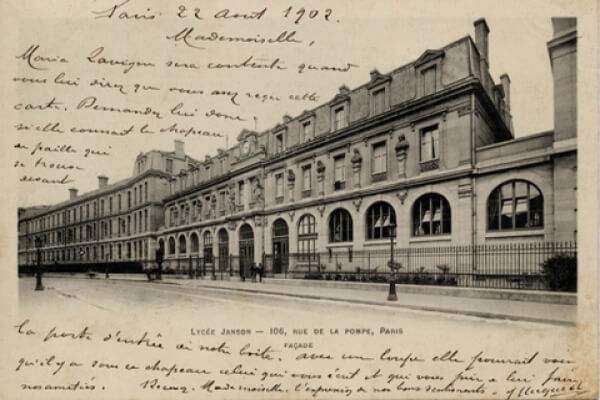 Paris 22 Aout 1902.
Mademoiselle,
Maria Lavigne sera contente quand
vous lui direz que vous avez reçu cette
carte. Demandez lui donc
si elle connait le chapeau
de paille qui
se trouve
devant
LYCÉE JANSON — 106, RUE DE LA POMPE, PARIS
FAÇADE
la porte d'entrée de notre boite. avec un loupe elle pourrait voir
qu'il y a sous ce chapeau celui qui vous écrit et qui vous prie de lui faire
nos amitiés. Recevez Mademoiselle l'expression de nos bons sentiments.